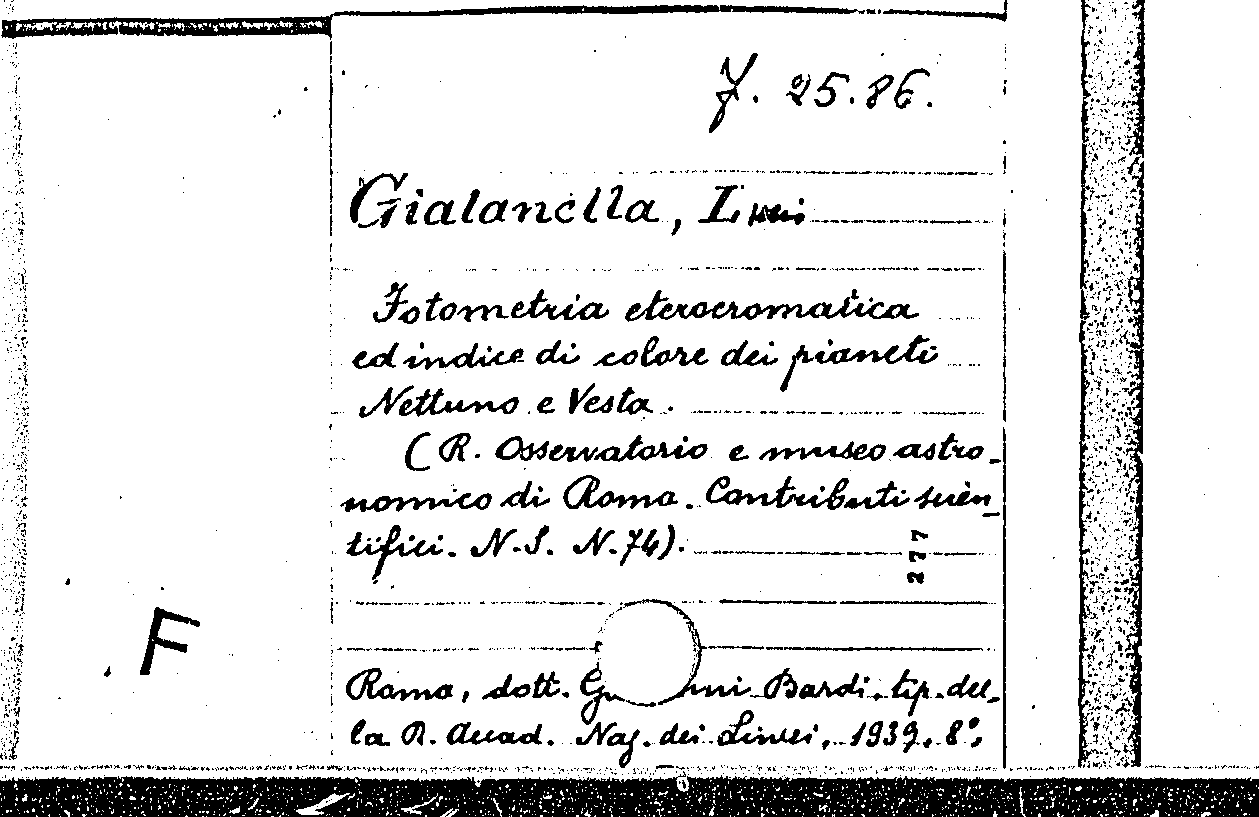 F. 25.86.
Gialanella, Luigi
Fotometria eterocromatica
ed indice di colore dei pianeti
Nettuno e Vesta.
(R. Osservatorio e museo astro-
nomico di Roma. Contributi scien-
tifici. N.S. N.74).
277
F
Roma, dott. G nni Bardi, tip. del-
la R. Accad. Naz. dei Lincei, 1939. 8°,